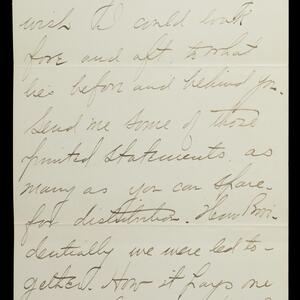 wish I could look
fore and aft, to what
lies before and behind you.
Send me some of those
printed statements, as
many as you can spare
for distribution. How Provi-
dentially we were led to-
gether. How it pays one